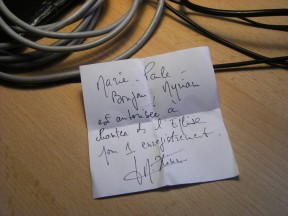 Marie-Paule
Bonjour, Myriam
est autorisée à
chanter ds l'Eglise
pour 1 enregistrement.